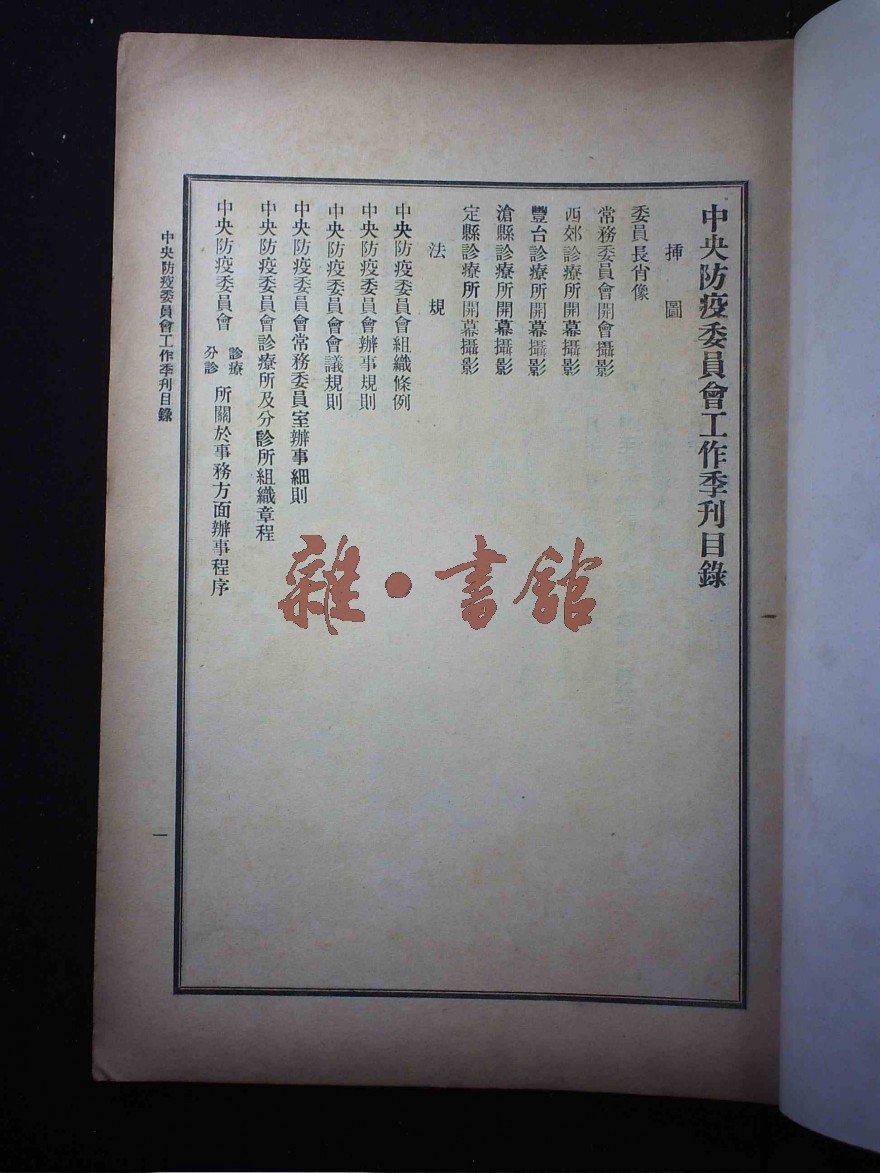 中央防疫委員會工作季刊目錄
挿圖
委員長肖像
常務委員會開會攝影
西郊診療所開幕攝影
豐台診療所開幕攝影
滄縣診療所開幕攝影
定縣診療所開幕攝影
法規
中央防疫委員會組織條例
中央防疫委員會辦事規則
中央防疫委員會會議規則
中央防疫委員會常務委員室辦事細則
中央防疫委員會診療所及分診所組織章程
中央防疫委員會診療分診所關於事務方面辦事程序
中央防疫委員會工作季刊目錄
一
雜·書館